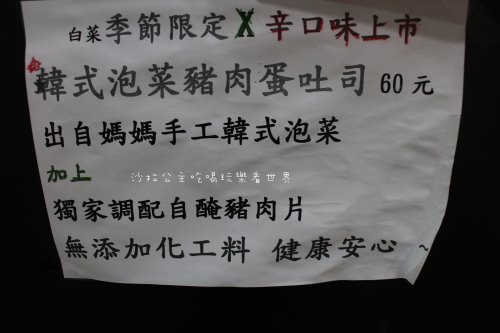 白菜季節限定 X 辛口味上市
韓式泡菜豬肉蛋吐司 60 元
出自媽媽手工韓式泡菜
加上
沙拉公主吃喝玩樂看世界
獨家調配自醃豬肉片
無添加化工料 健康安心 ~